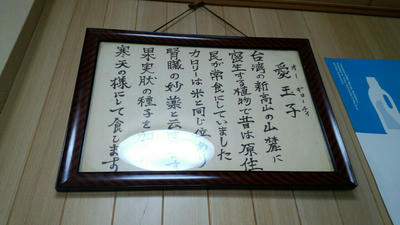 愛玉子
オー ギョーチィ
台湾の新高山の山麓に
密生する植物で昔は原住
民が常食にしていました
カロリーは米と同じ位
腎臓の妙薬と云
果実状の種子を
寒天の様にして食します